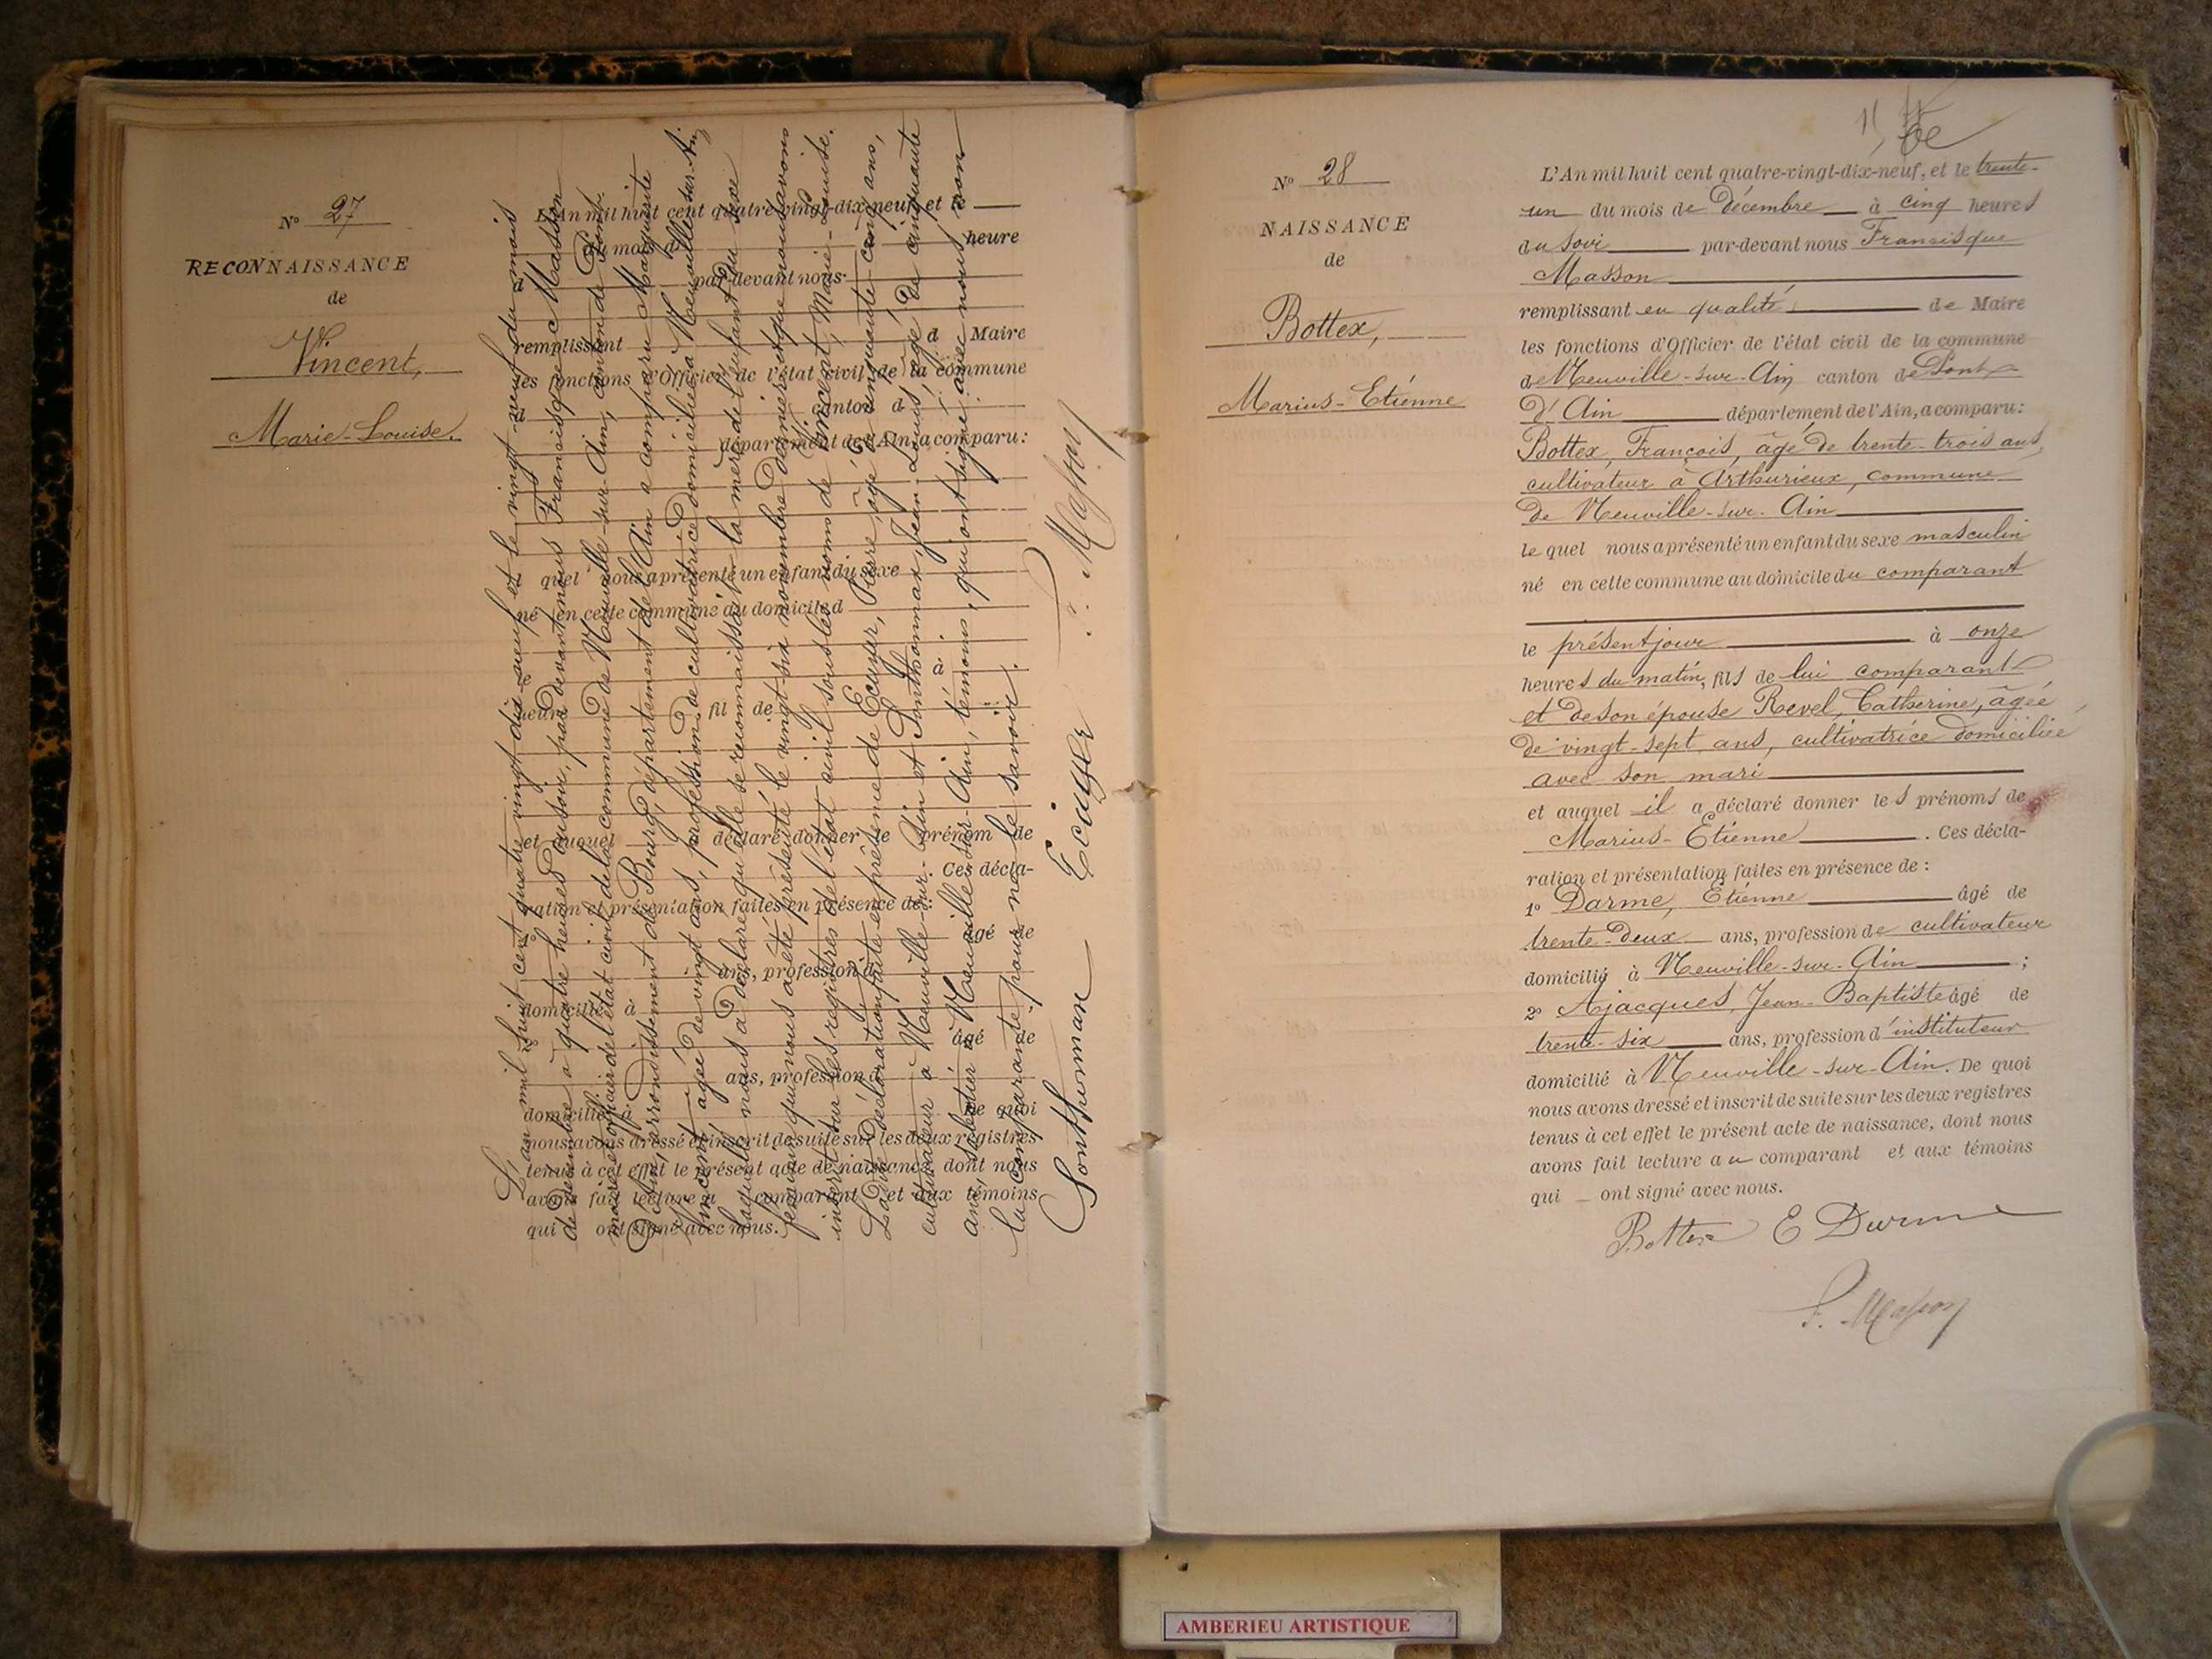 N° 27
RECONNAISSANCE
de
Vincent,
Marie-Louise.
L'An mil huit cent quatre-vingt-dix-neuf, et l
du mois d heure
par-devant nous
remplissant d Maire
les fonctions d'Officier de l'état civil de la commune
d canton d
département de l'Ain, a comparu:
l quel nous a présenté un enfant du sexe
né en cette commune au domicile d
à
heure fil de
et auquel déclaré donner le prénom de
Ces décla-
ration et présentation faites en présence de:
âgé de
ans, profession d
domicilié à
âgé de
ans, profession d
domicilié à De quoi
nous avons dressé et inscrit de suite sur les deux registres
tenus à cet effet le présent acte de naissance, dont nous
avons fait lecture a comparant et aux témoins
qui ont signé avec nous.
L'an mil huit cent quatre vingt dix-neuf et le vingt-neuf du mois
de décembre à quatre heures du soir, par devant nous Francisque Masson
maire et officier de l'état civil de la commune de Neuville-sur-Ain, canton de Pont-
d'Ain, arrondissement de Bourg, département de l'Ain a comparu Marguerite
Vincent âgée de vingt ans, profession de cultivatrice domiciliée à Neuville-sur-Ain
laquelle nous a déclaré qu'elle se reconnaissait la mère de l'enfant du sexe
féminin qui nous a été présenté le vingt-six novembre dernier et que nous avons
inscrit sur les registres de l'état civil sous les noms de Vincent, Marie-Louise.
La dite déclaration faite en présence de Ecuyer, Pierre, âgé de cinquante-cinq ans,
cultivateur à Neuville-sur-Ain et Sonthonnax, Jean-Louis, âgé de cinquante
ans, sabotier à Neuville-sur-Ain, témoins, qui ont signé avec nous, non
la comparante pour ne le savoir.
Sonthonnax Ecuyer F. Masson
N° 28
NAISSANCE
de
Bottex,
Marius-Etienne
L'An mil huit cent quatre-vingt-dix-neuf, et le trente-
un du mois de Décembre à cinq heures
du soir par-devant nous Francisque
Masson
remplissant en qualité de Maire
les fonctions d'Officier de l'état civil de la commune
de Neuville-sur-Ain canton de Pont
d'Ain département de l'Ain, a comparu:
Bottex, François, âgé de trente-trois ans,
cultivateur à Arthurieux, commune
de Neuville-sur-Ain
le quel nous a présenté un enfant du sexe masculin
né en cette commune au domicile du comparant
le présent jour à onze
heures du matin, fils de lui comparant
et de son épouse Revel, Catherine, âgée
de vingt-sept ans, cultivatrice domiciliée
avec son mari
et auquel il a déclaré donner les prénoms de
Marius-Etienne . Ces décla-
ration et présentation faites en présence de:
1° Darme, Etienne âgé de
trente-deux ans, profession de cultivateur
domicilié à Neuville-sur-Ain ;
2° Ajacques, Jean-Baptiste âgé de
trente-six ans, profession d'instituteur
domicilié à Neuville-sur-Ain. De quoi
nous avons dressé et inscrit de suite sur les deux registres
tenus à cet effet le présent acte de naissance, dont nous
avons fait lecture au comparant et aux témoins
qui ont signé avec nous.
Bottex E Darme
F. Masson
AMBERIEU ARTISTIQUE